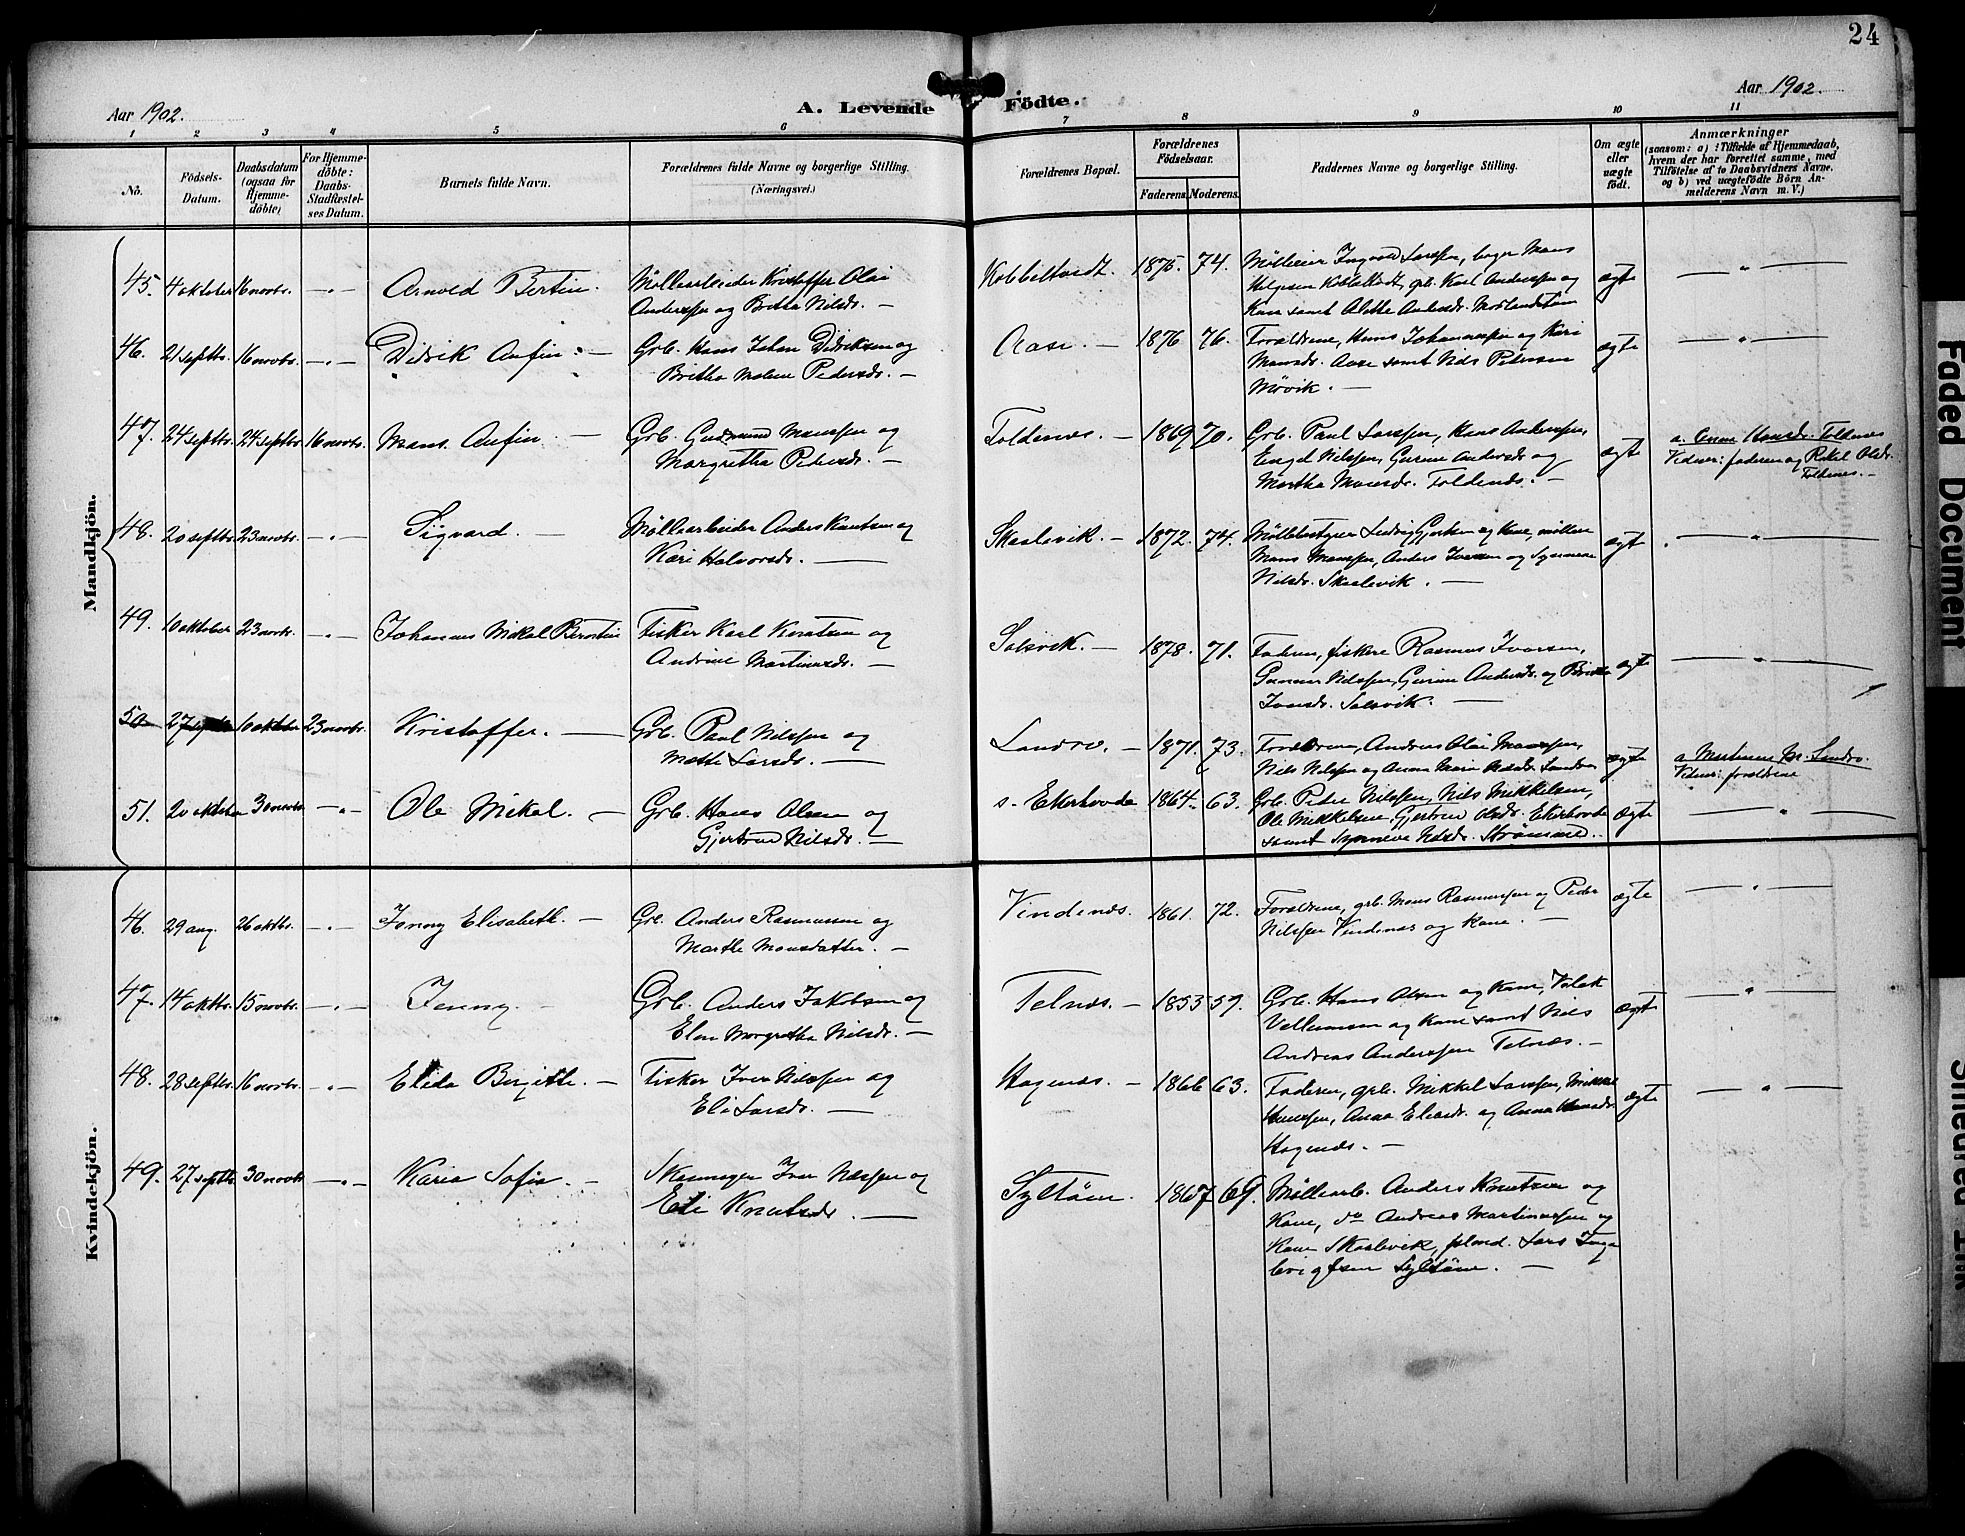 24
Aar 1902.
A. Levende Födte.
Aar 1902.
1 2 3 4 5 6 7 8 9 10 11
No.
Födsels-
Datum.
Daabsdatum
(ogsaa for
Hjemme-
döbte)
For Hjemme-
döbte:
Daabs-
Stadfæstel-
ses Datum.
Barnets fulde Navn.
Forældrenes fulde Navne og borgerlige Stilling.
(Næringsvei.)
Forældrenes Bopæl.
Forældrenes
Födselsaar.
Faderens. Moderens.
Faddernes Navne og borgerlige Stilling.
Om ægte
eller
uægte
födt.
Anmærkninger
(saasom: a) i Tilfælde af Hjemmedaab,
hvem der har forrettet samme, med
Tilföielse af to Daabsvidners Navne,
og b) ved uægtefödte Börn An-
melderens Navn m. V.)
Mandkjön.
45. 4 oktober 16 novbr. — " — Arnold Bertin. Møllearbeider Kristoffer Olai
Anderssen og Britha Nilsdr. —
Kobbeltvedt. 1875. 74. Møllerier Ingvald Larssen, bager Mons
Helgesen Kobbeltvedt, grb. Karl Anderssen og
Kone samt Alette Andersdr.
ægte — " —
46. 21 septbr. 16 novbr. — " — Didrik Anfin. — Grb. Hans Johan Didriksen og
Britha Malene Pedersdr. —
Aase. — 1876 76. Forældrene, Hans Johannessen og Kari
Monsdr. Aase samt Nils Petersen
Møvik. —
ægte — " —
47. 24 septbr. 24 septbr. 16 novbr. Mans Anfin. — Grb. Gudmund Monssen og
Margretha Pedersdr. —
Toldenæs. — 1869 70. Grb. Paul Larssen, Hans Anderssen,
Engel Nilssen, Gurine Andersdr og
Martha Monsdr. Toldenæs. —
ægte a. Anna Hansdr. Toldenæs
Vidner: faderen og Rakel Olsdr.
Toldenæs. —
48. 20 septbr. 23 novbr. — " — Sigvard. — Møllearbeider Anders Knutsen og
Kari Halvorsdr. —
Skaalevik. — 1872. 74. Møllebestyrer Ludvig Gjerken og Kone, møllern
Mons Monssen, Anders Iversen og Synneve
Nilsdr. Skaalevik. —
ægt — " —
49. 10 oktober 23 novbr. — " — Johannes Mikal Berntin Fisker Karl Knutsen og
Andrine Martinusdr. —
Solsvik. — 1878. 71. Faderen, fiskere Rasmus Iversen,
Gunnar Nilssen, Gurine Andersdr. og Britha
Iversdr. Solsvik. —
ægte — " —
50 27 septbr 10 oktober 23 novbr. Kristoffer. — Grb. Paul Nilssen og
Mette Larsdr. —
Landro. — 1871. 73. Forældrene, Andreas Olai Monssen,
Nils Nilssen og Anna Marie Nilsdr. Landro
ægte
Vidner: forældrene
51. 20 oktober 30 novbr — " — Ole Mikal. — Grb. Hans Olsen og
Gjertrud Nilsdr. —
s. Ekerhovde 1864. 63. Grb. Peder Nilssen, Nils Mikkelsen,
Ole Mikkelsen, Gjertrud Olsdr. Ekerhovde
samt Synneve Nilsdr. Strømsnæs. —
ægte — " —
Kvindekjön.
46. 29 aug. 26 oktbr. — " — Jenny Elisabeth. — Grb. Anders Rasmussen og
Marthe Monsdatter. —
Vindenæs. 1861. 72. Forældrene, grb. Mons Rasmussen og Peder
Nilssen Vindenæs og Kone. —
ægte — " —
47. 14 oktbr. 15 novbr. — " — Jenny. Grb. Anders Jakobsen og
Elen Margretha Nilsdr. —
Telnæs. — 1853 59. Grb. Hans Olsen og Kone, Valek
Vellumsen og Kone samt Nils
Andreas Anderssen Telnæs. —
ægte — " —
48. 28 septbr. 16 novbr. — " — Elida Birgithe. — Fisker Iver Nilssen og
Eli Larsdr. —
Hagenæs. — 1866 63. Faderen, grb. Mikkel Larssen, Mikkel
Hanssen, Anna Eliasdr. og Anna Hansdr.
Hagenæs. —
ægte — " —
49. 27 septbr 30 novbr — " — Karia Sofia. — Skomager Iver Nilssen og
Eli Knutsdr. —
Syltöen. 1867 69. Møllearb. Anders Knutsen og
Kone, do Andreas Martinussen og
Kone Skaalevik, plmd. Lars Inge
brigtsen Syltöen. —
Faded Document
Smeared Ink